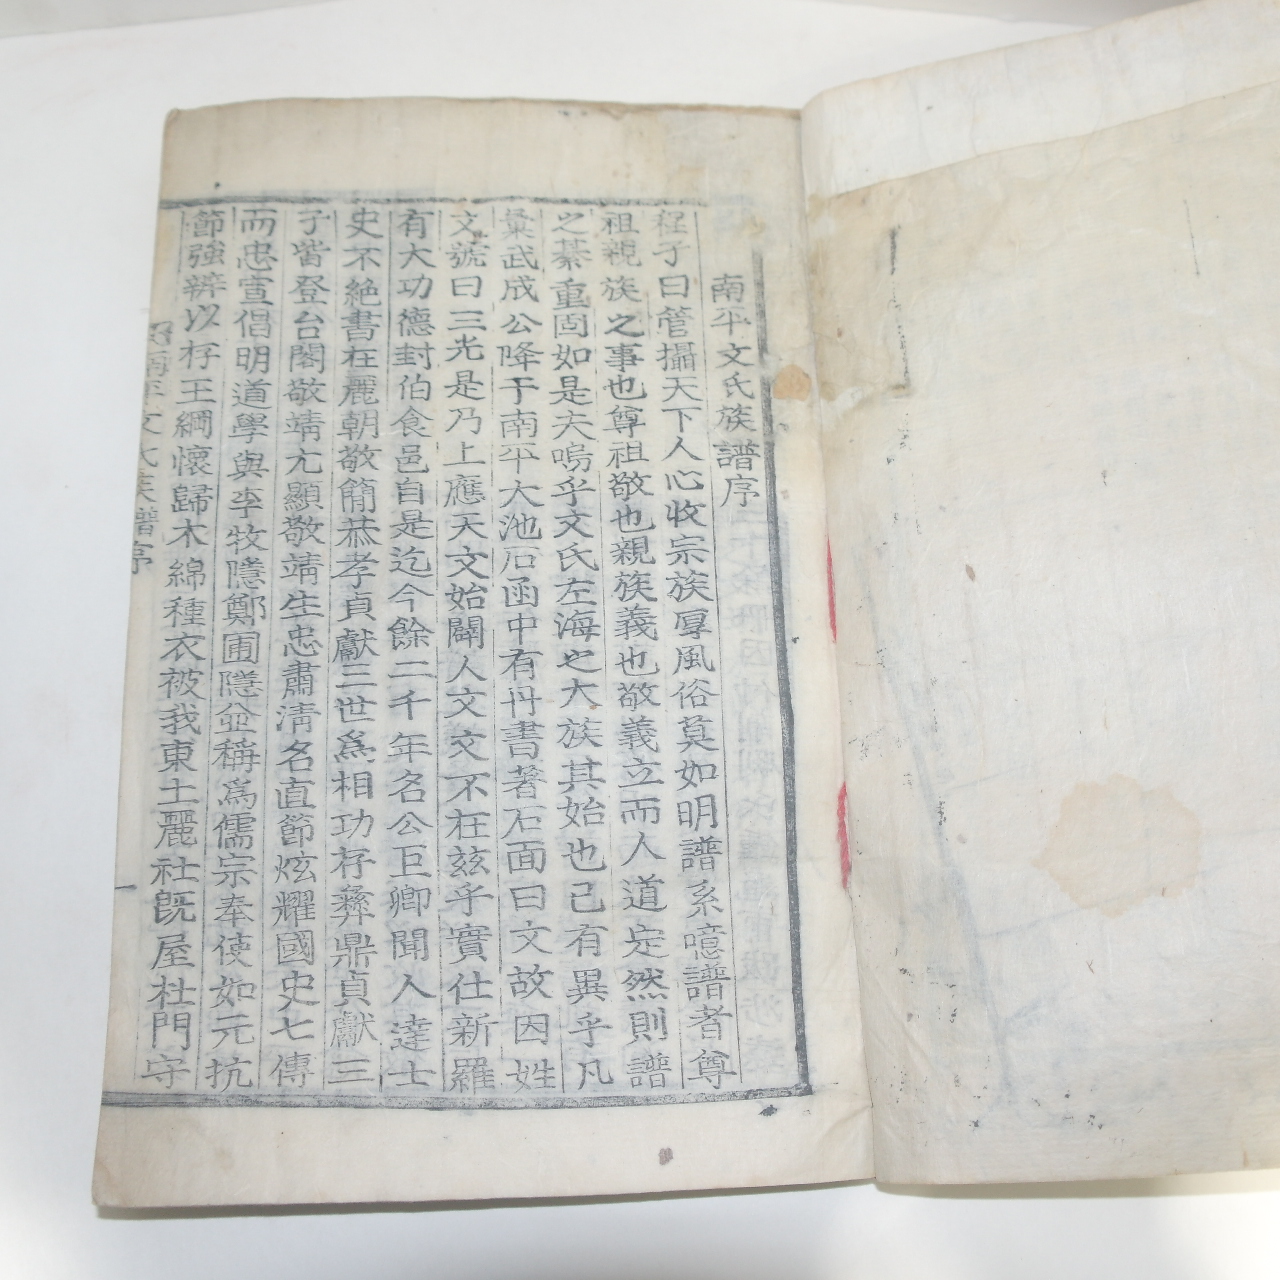 南平文氏族譜序
程子曰管攝天下人心收宗族厚風俗莫如明譜系噫譜者尊
祖親族之事也尊祖敬也親族義也敬義立而人道定然則譜
之綦重固如是夫嗚乎文氏左海之大族其始也已有異乎凡
彙武成公降于南平大池石函中有丹書著石面曰文故因姓
文號曰三光是乃上應天文始闢人文文不在玆乎實仕新羅
有大功德封伯食邑自是迄今餘二千年名公巨卿聞人達士
史不絶書在麗朝敬簡恭孝貞獻三世爲相功存彝鼎貞獻三
子皆登台閣敬靖亢顯敬靖生忠肅淸名直節炫耀國史七傳
而忠宣倡明道學與李牧隱鄭圃隱並稱爲儒宗奉使如元抗
節強辨以存王綱懷歸木綿種衣被我東土麗社旣屋杜門守
南平文氏族譜序
一